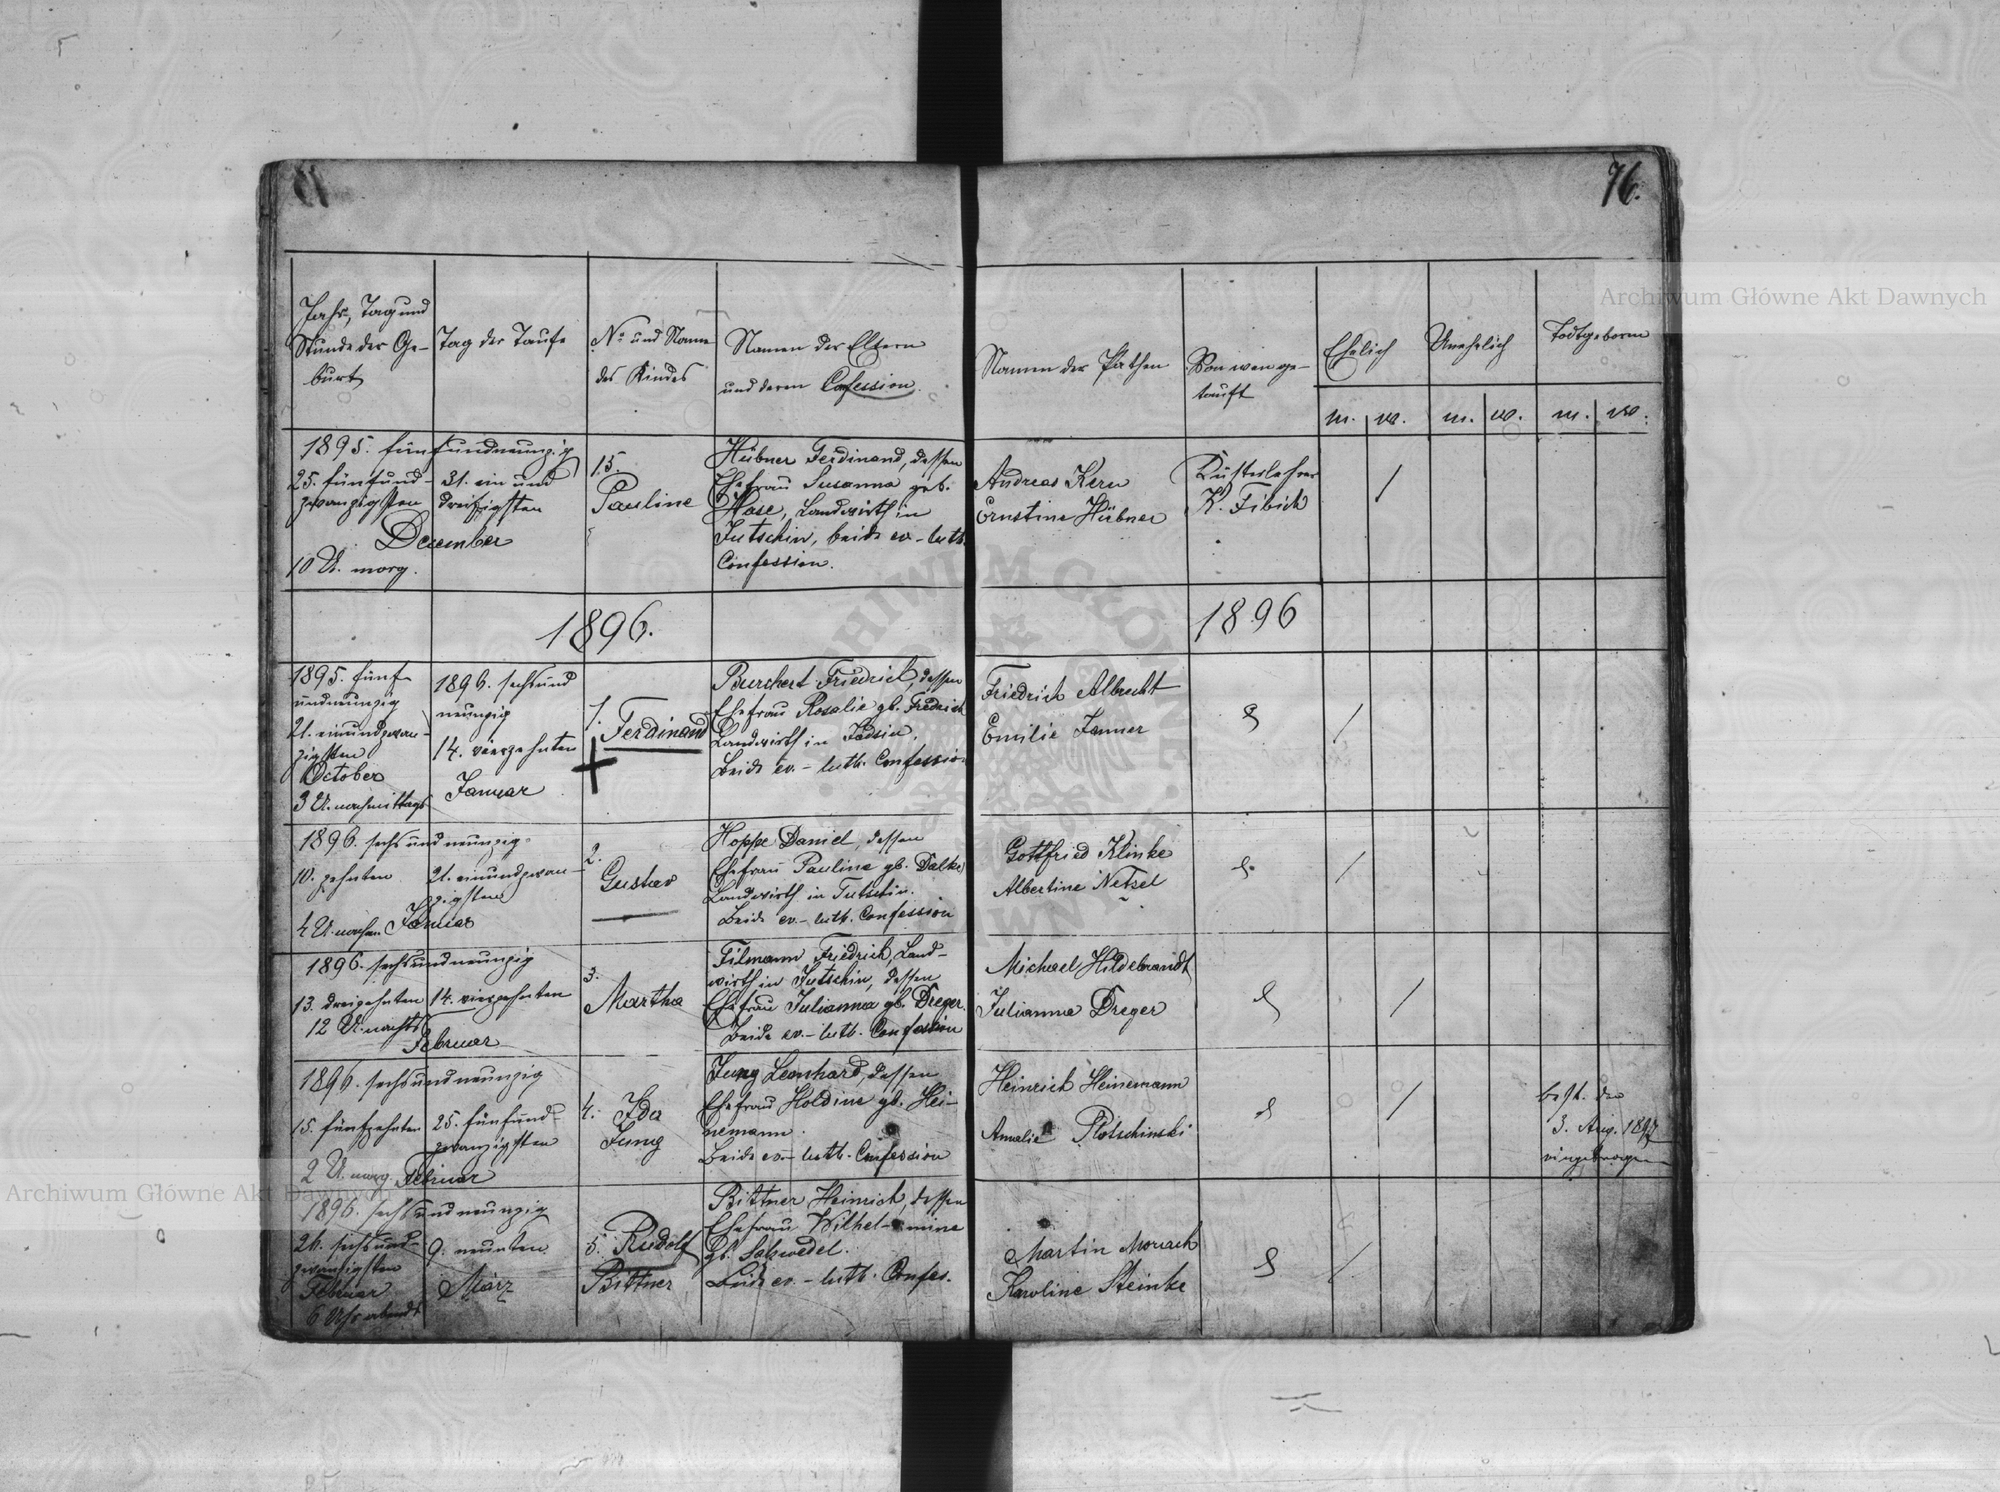 76.
Archiwum Główne Akt Dawnych
Jahr, Tag und
Stunde der Ge-
burt
Tag der Taufe
No und Name
des Kindes
Namen der Eltern
und deren Confession.
Namen der Pathen
Von wem ge-
tauft
Ehelich
Unehelich
Todtgeboren
m. w. m. w. m. w.
1895. fünfundneunzig
25. fünfund-
zwanzigsten
31. ein und
dreißigsten
December
10 U. morg.
15.
Pauline
Hübner Ferdinand, dessen
Ehefrau Susanna geb.
Hase, Landwirth in
Jutschin, beide ev-luth.
Confession.
Andreas Kern
Ernstine Hübner
Küsterlehrer
K. Fibich
/
1896.
1896
1895. fünf
undneunzig
21. einundzwan-
zigsten
October
3 U. nachmittags
1896. sechsund
neunzig
14. vierzehnten
Januar
1.
Ferdinand
Burchert Friedrich, dessen
Ehefrau Rosalie gb. Fredrich
Landwirth in
Beide ev.-luth. Confession
Friedrich Albrecht
Emilie Janner
/
1896. sechsundneunzig
10. zehnten
21. einundzwan-
zigsten
4 U. nachm. Januar
2.
Gustav
Hoppe Daniel, dessen
Ehefrau Pauline gb. Dalke
Landwirth in Jutschin.
Beide ev.-luth. Confession
Gottfried Klinke
Albertine Netzel
/
1896. sechsundneunzig
13. dreizehnten
14. vierzehnten
12 U. nachts
Februar
3.
Martha
Filmann Friedrich, Land-
wirth in Jutschin, dessen
Ehefrau Julianna gb. Dreger.
Beide ev.-luth. Confession
Michael Hildebrandt
Julianna Dreger
/
1896. sechsundneunzig
15. fünfzehnten
25. fünfund-
zwanzigsten
2 U. morg. Februar
4. Ida
Jung
Jung Leonhard, dessen
Ehefrau Holdine gb. Hei-
nemann.
Beide ev-luth. Confession
Heinrich Heinemann
Amalie Plotschinski
/
den
3. Aug. 1897
eingetragen
Archiwum Główne Akt Dawnych
1896. sechsundneunzig
26. sechsund-
zwanzigsten
Februar
6 Uhr abends
9. neunten
März
5. Rudolf
Bittner
Bittner Heinrich, dessen
Ehefrau Wilhel-mine
gb. Salzwedel.
Beide ev.-luth. Confes.
Martin
Karoline Steinke
/